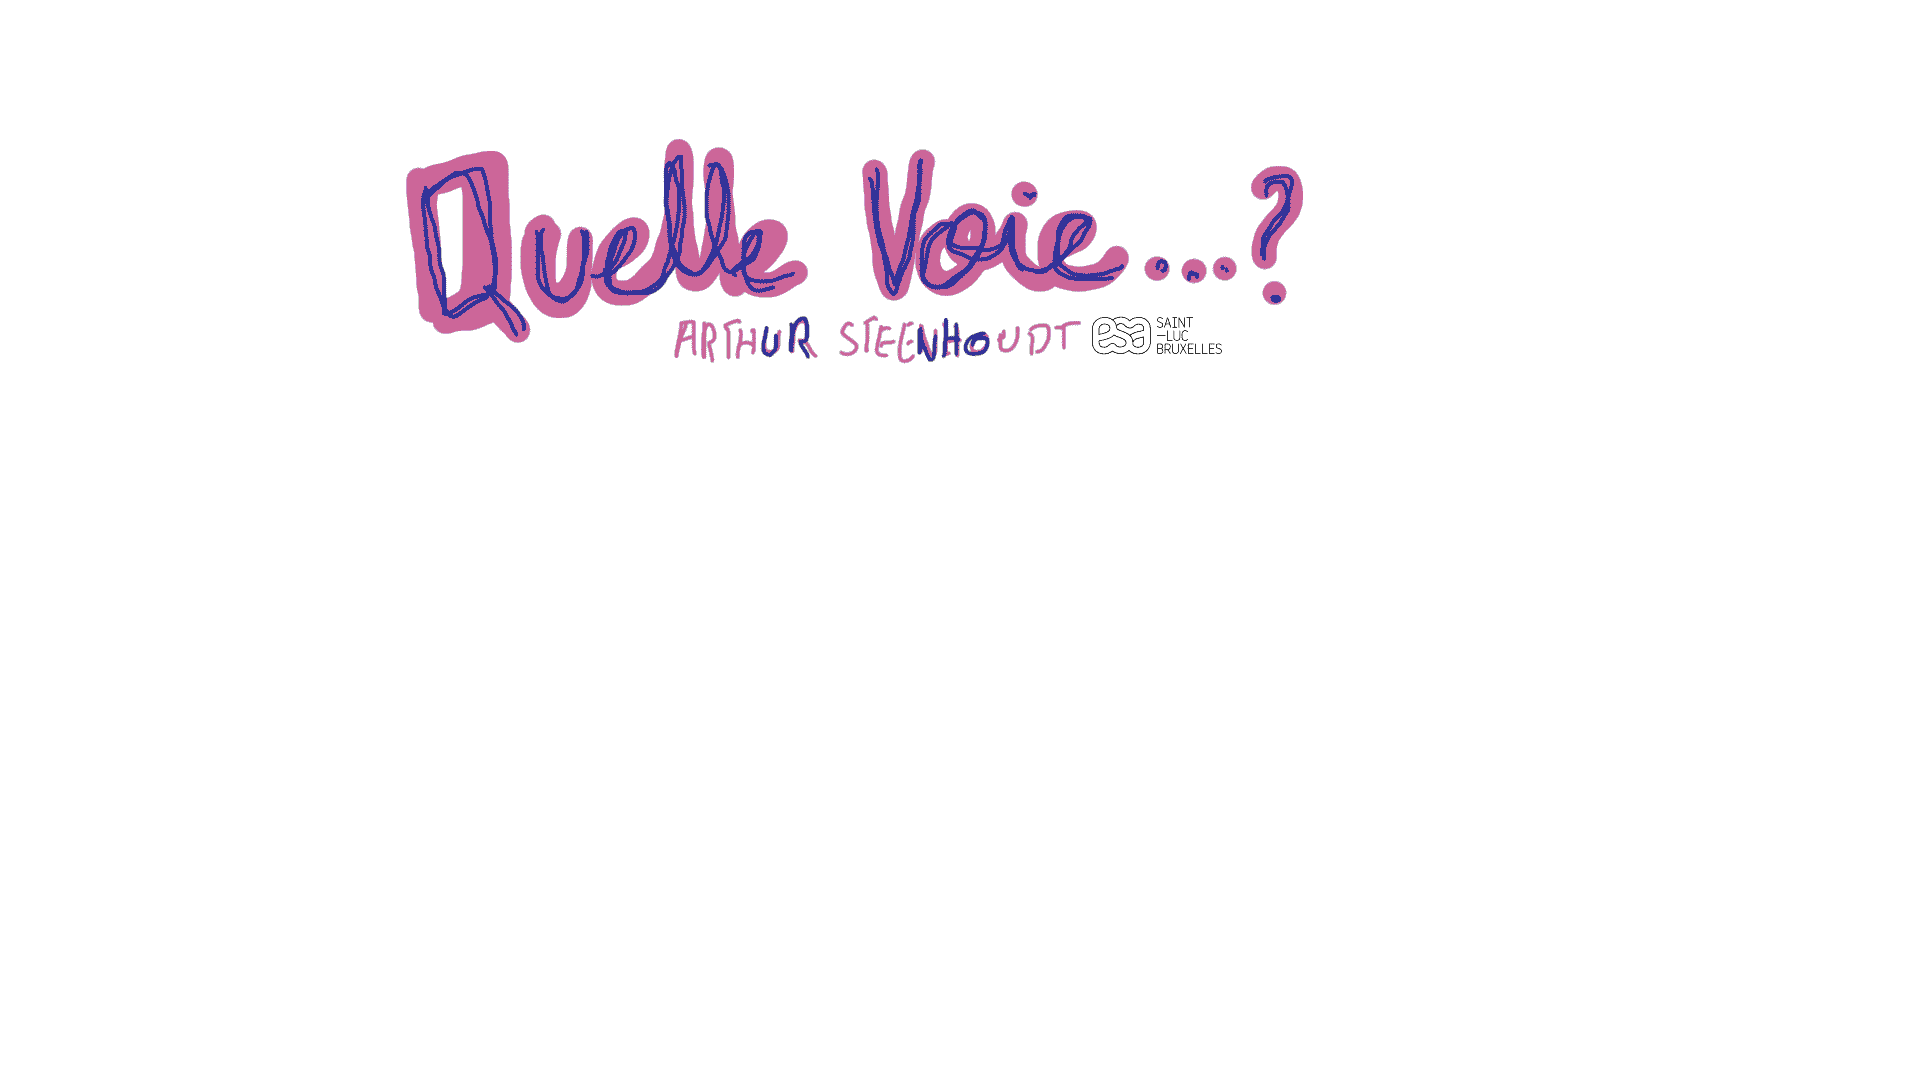 Quelle Voie...?
ARTHUR STEENHOUDT esa SAINT
–LUC
BRUXELLES